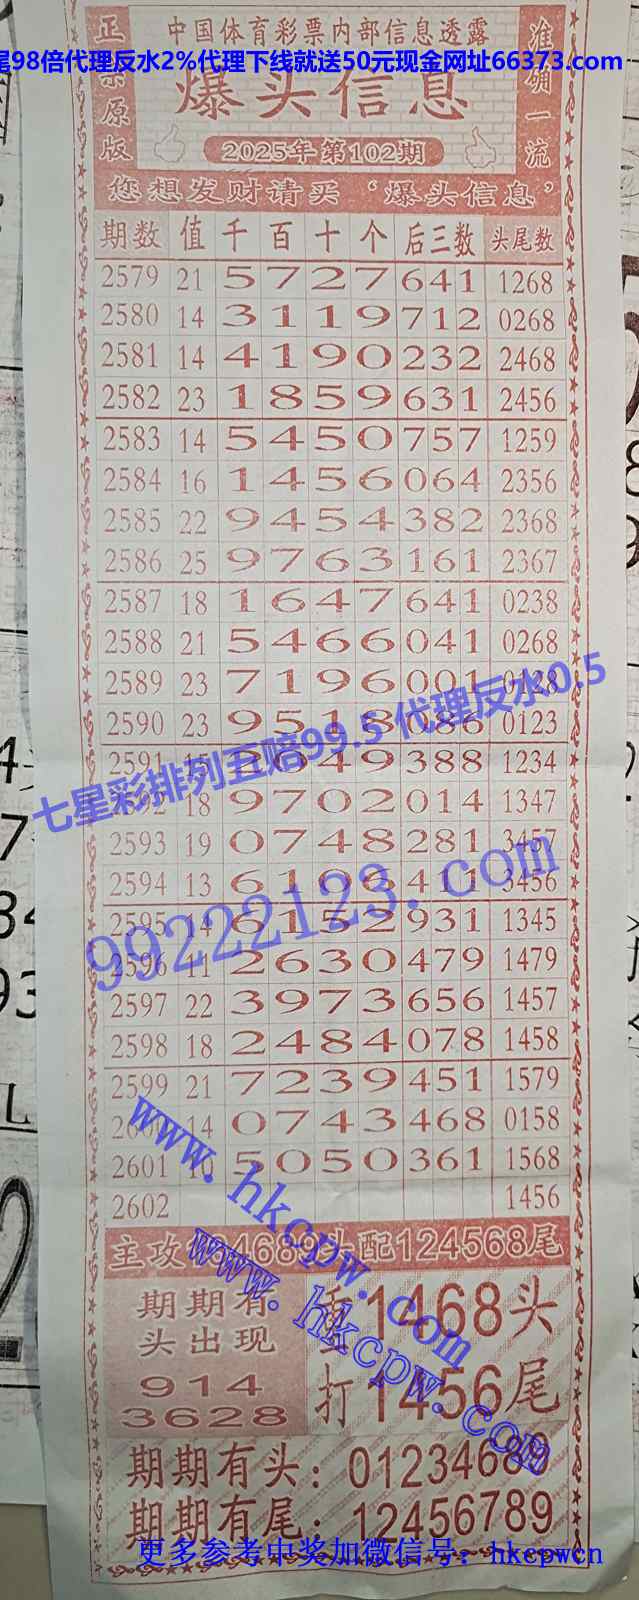 正宗原版
中国体育彩票内部信息透露
准确一流
尾98倍代理反水2%代理下线就送50元现金网址66373.com
爆头信息
2025年第102期
您想发财请买‘爆头信息’
期数 值 千 百 十 个 后三数 头尾数
2579 21 5 7 2 7 641 1268
2580 14 3 1 1 9 712 0268
2581 14 4 1 9 0 232 2468
2582 23 1 8 5 9 631 2456
2583 14 5 4 5 0 757 1259
2584 16 1 4 5 6 064 2356
2585 22 9 4 5 4 382 2368
2586 25 9 7 6 3 161 2367
2587 18 1 6 4 7 641 0238
2588 21 5 4 6 6 041 0268
2589 23 7 1 9 6 001 0128
2590 23 9 5 1 8 086 0123
七星彩排列五赔99.5 代理反水0.5
2591 6 4 9 388 1234
2592 18 9 7 0 2 014 1347
2593 19 0 7 4 8 281 3457
2594 13 6 1 0 6 411 3456
99222123.com
2595 14 6 1 5 2 931 1345
2596 11 2 6 3 0 479 1479
2597 22 3 9 7 3 656 1457
2598 18 2 4 8 4 078 1458
2599 21 7 2 3 9 451 1579
2600 14 0 7 4 3 468 0158
2601 10 5 0 5 0 361 1568
2602 1456
www.hkcpw.com
主攻 4689头配124568尾
www.hkcpw.com
期期有
头出现
914
3628
重1468头
打1456尾
期期有头：01234689
期期有尾：12456789
更多参考中奖加微信号：hkcpwcn